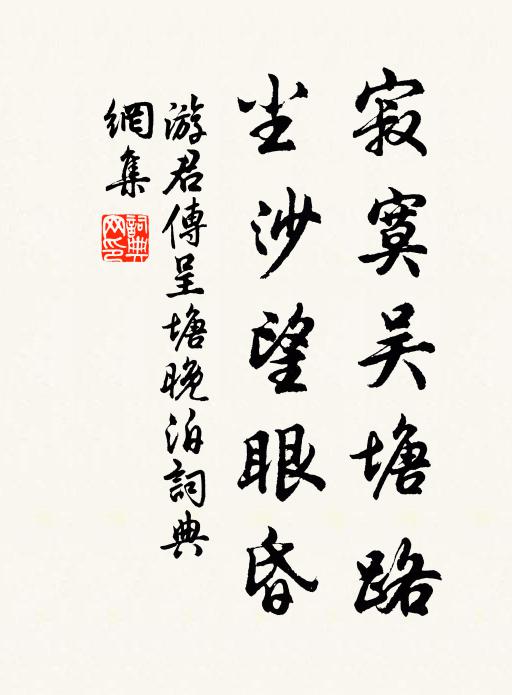 寂寞吴塘路
尘沙望眼昏
游君傳呈塘晚泊詞典
網集
詞典网印